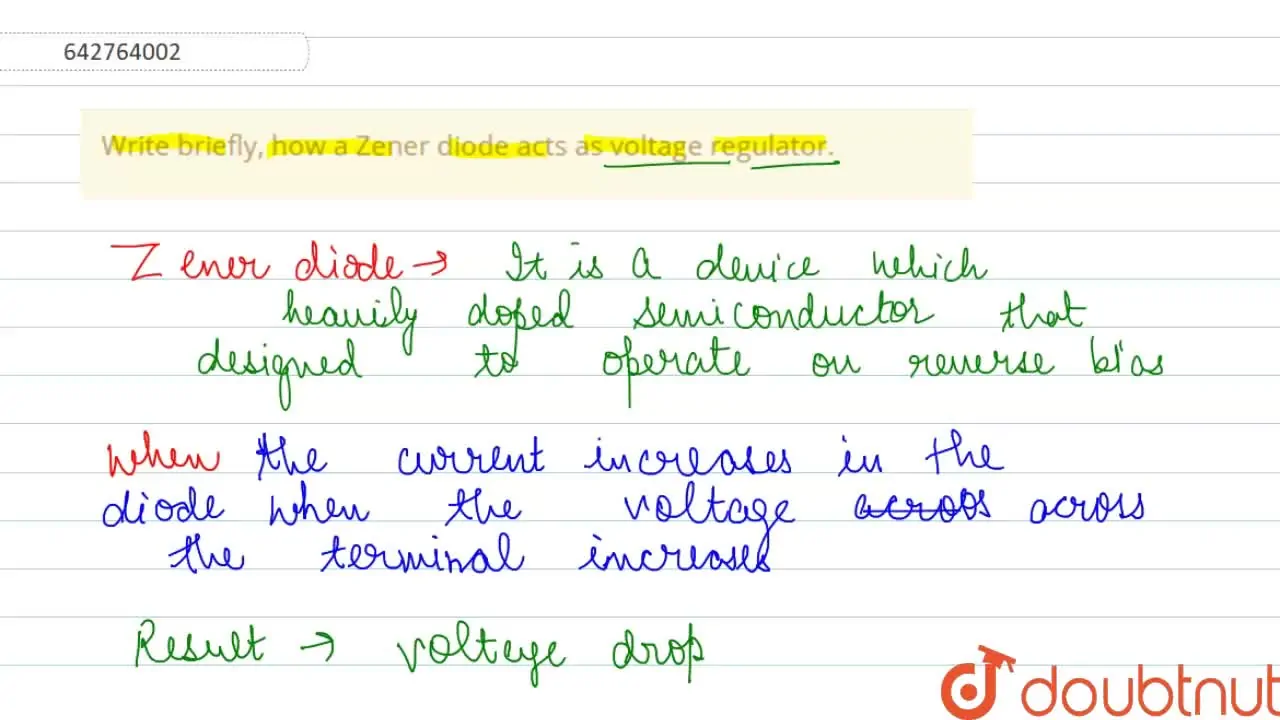 642764002
Write briefly, how a Zener diode acts as voltage regulator.
Zener diode → It is a device which
heavily doped semiconductor that
designed to operate on reverse bias
When the current increases in the
diode when the voltage across across
the terminal increases
Result → voltage drop
doubtnut